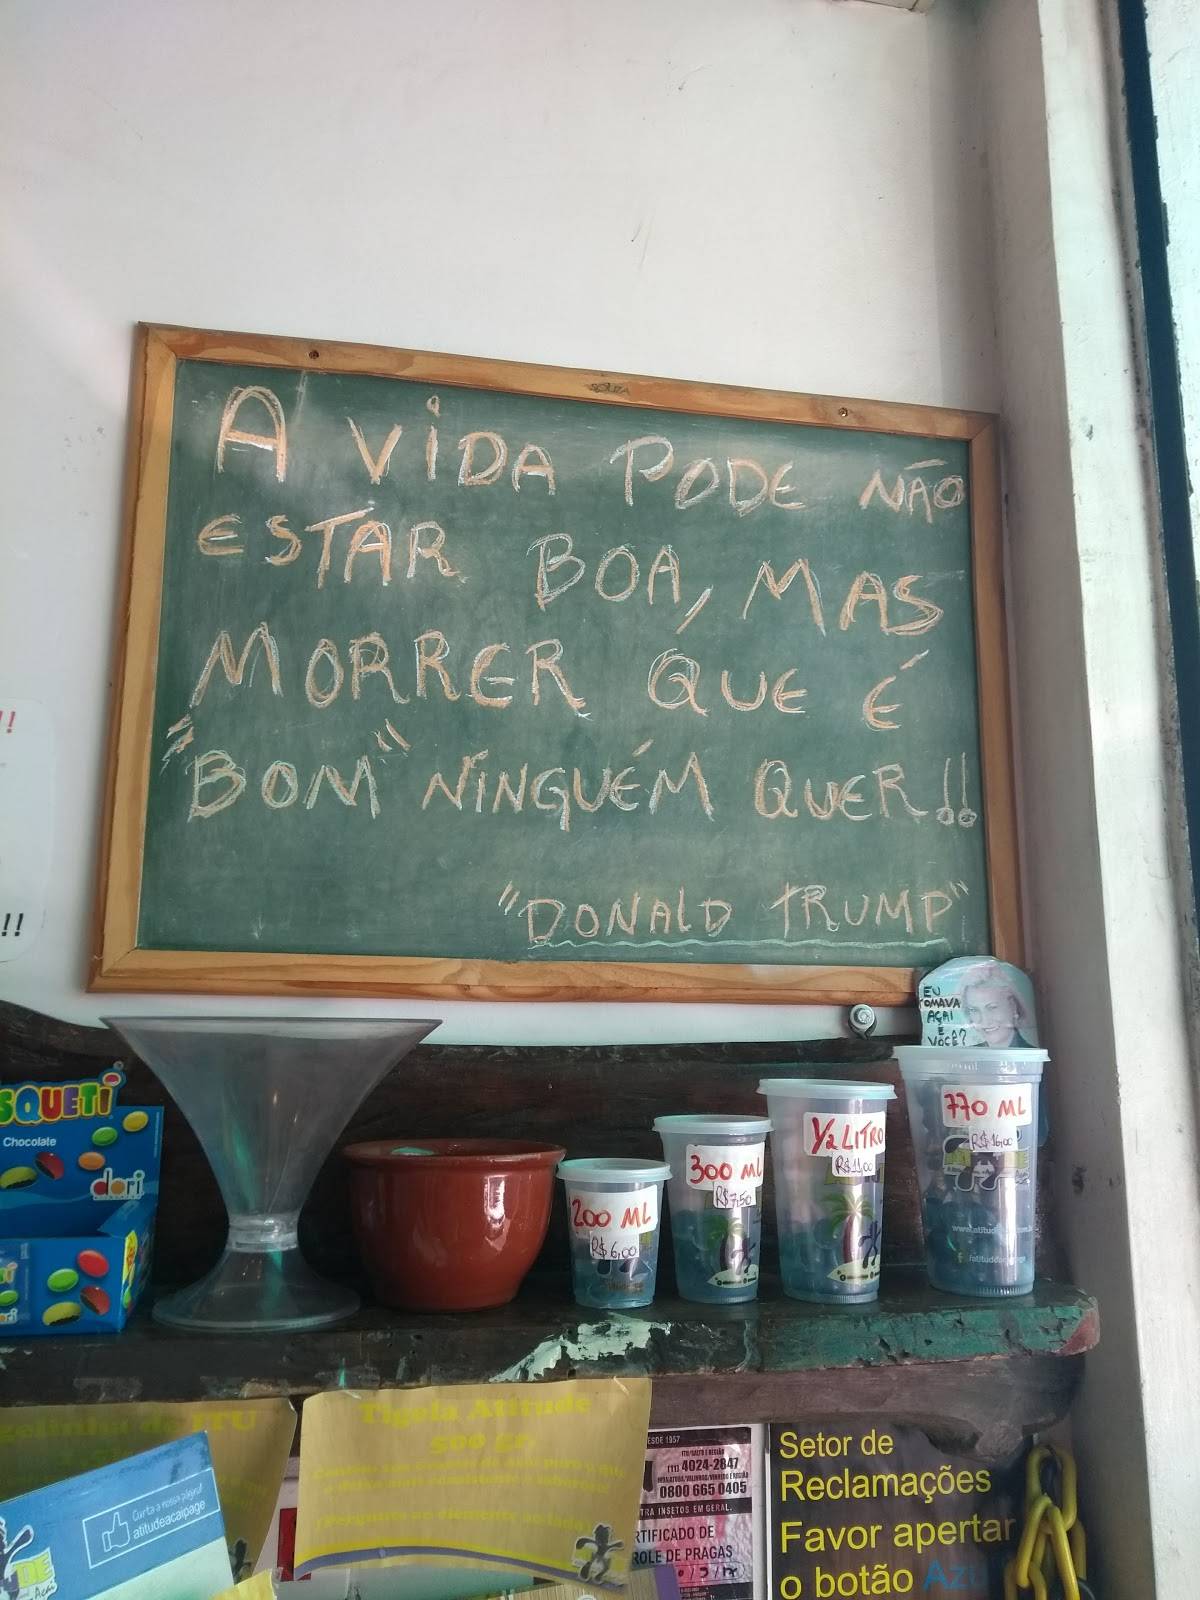 A VIDA PODE NÃO
ESTAR BOA, MAS
MORRER QUE É
"BOM" NINGUÉM QUER!!
"DONALD TRUMP"
SOUZA
!!
!!!
EU
TOMAVA
AÇAI
E
VOCÊ?
SQUETI
Chocolate
dori
200 ML
R$ 6,00
300 ML
R$ 7,50
1/2 LITRO
R$ 11,00
770 ML
R$ 16,00
ITU
Tigela Atitude
500 gr.
Curta a nossa página!
atitudeacaipage
DE
Açaí
DESDE 1957
ITU/SALTO E REGIÃO
(11) 4024-2847
0800 665 0405
TRA INSETOS EM GERAL.
RTIFICADO DE
ROLE DE PRAGAS
Setor de
Reclamações
Favor apertar
o botão Azu